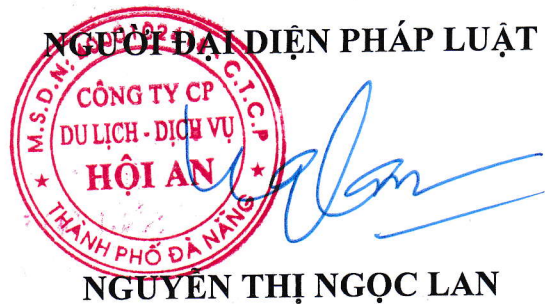 NGƯỜI ĐẠI DIỆN PHÁP LUẬT
M.S.D.N:
C.T.C.P
CÔNG TY CP
DU LỊCH - DỊCH VỤ
HỘI AN
THÀNH PHỐ ĐÀ NẴNG
NGUYỄN THỊ NGỌC LAN